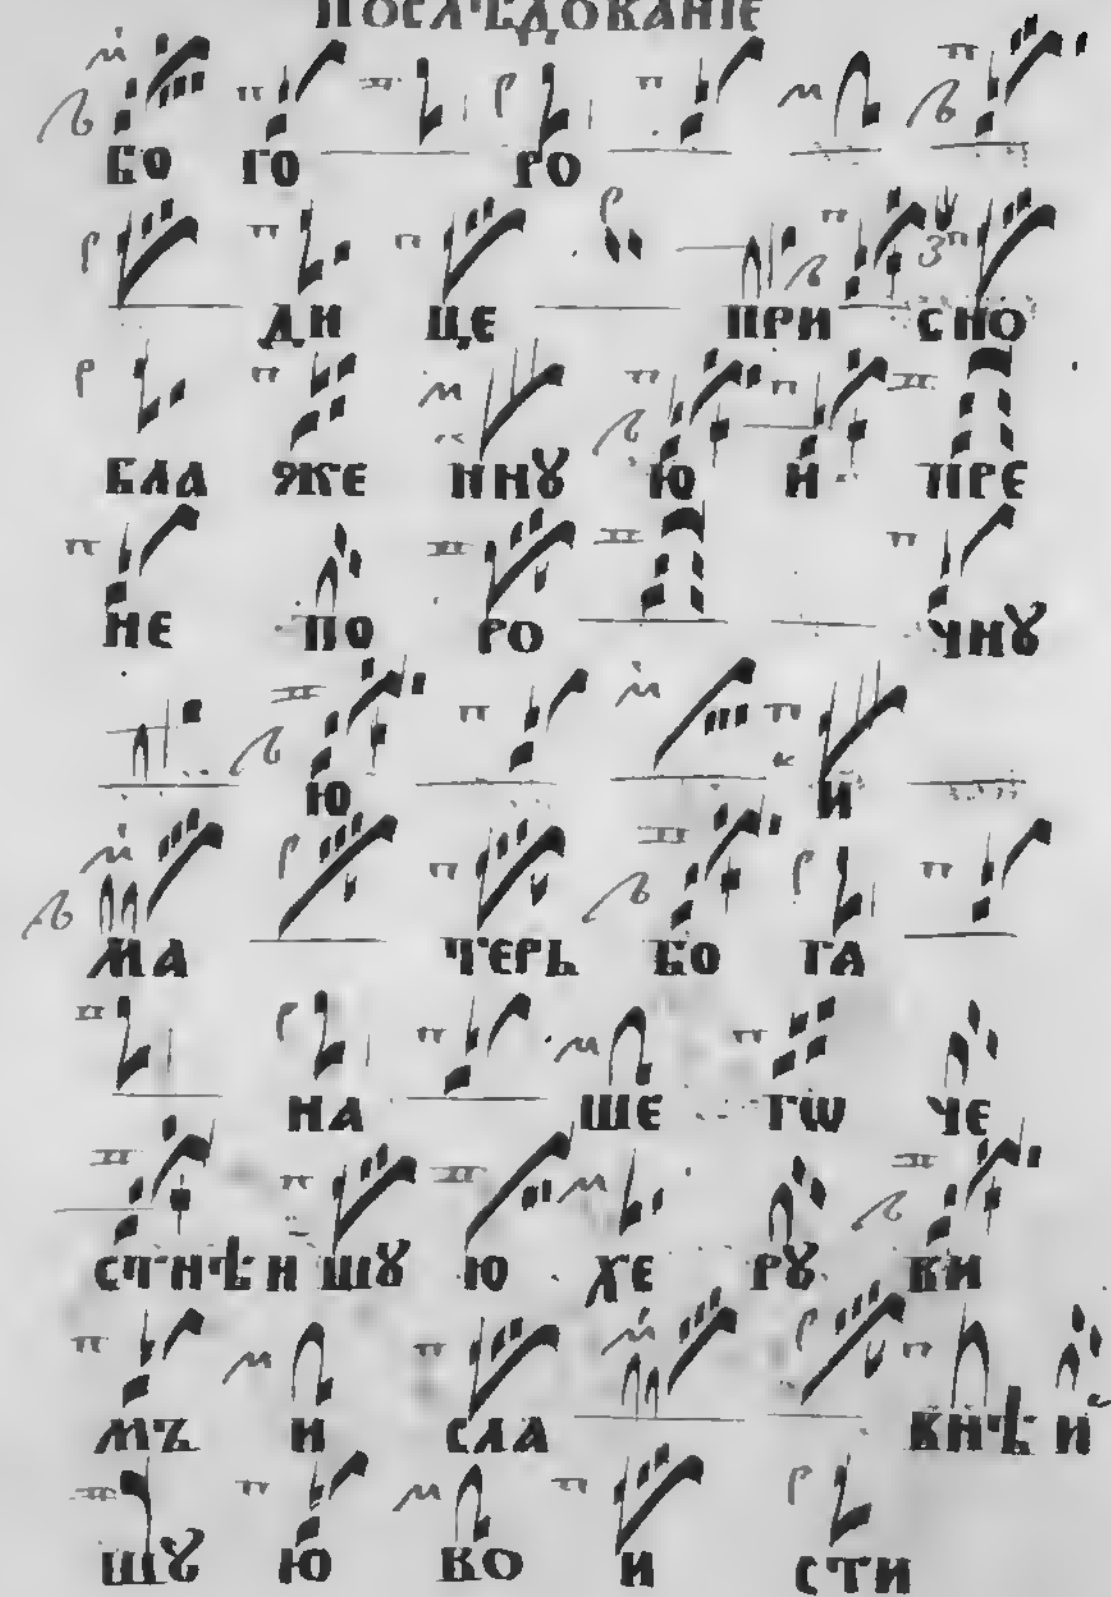 ПОСЛѢДОВАНІЕ
БО ГО РО
ДИ ЦЕ ПРИ СНО
БЛА ЖЕ ННꙊ Ю И ПРЕ
НЕ ПО РО ЧНꙊ
Ю И
МА ТЕРЬ БО ГА
НА ШЕ ГѠ ЧЕ
СТНѢ И ШꙊ Ю ХЕ РꙊ ВИ
МЪ И СЛА ВНѢ И
ШꙊ Ю ВО И СТИ